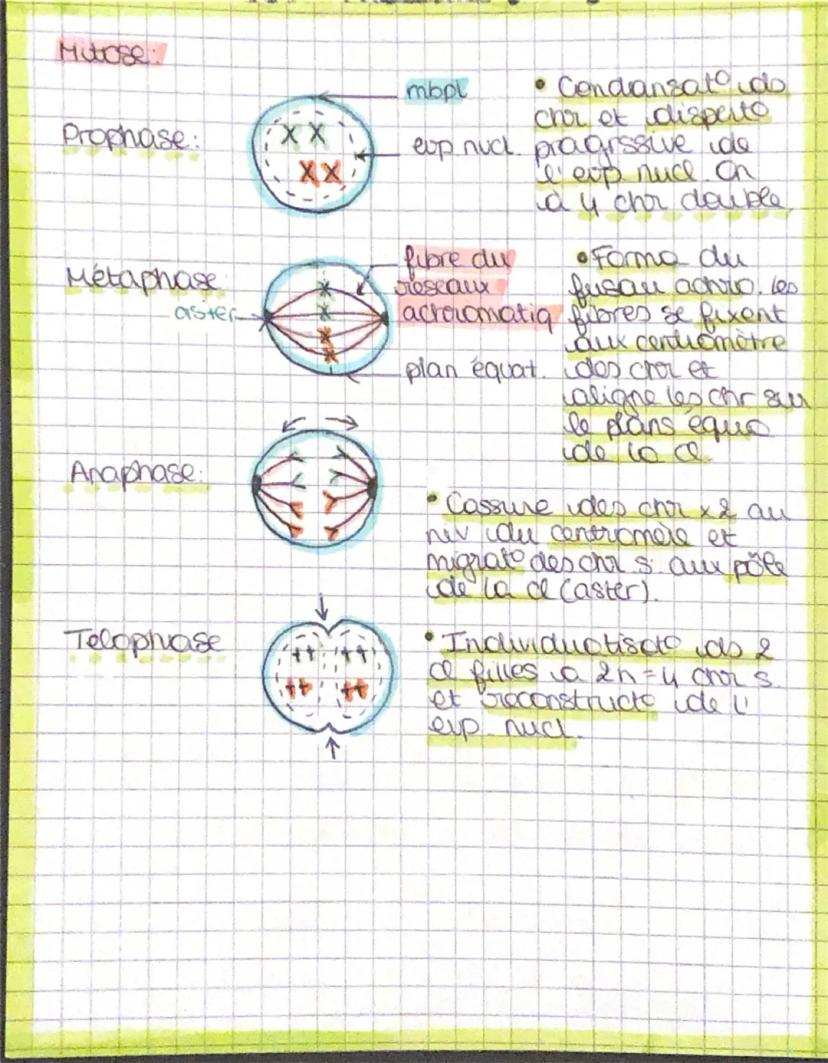 Mitose:
Prophase:
mbpl
evp nucl.
• Condansat° ds
chr et disperto
progrssive de
l'evp nucl. On
a 4 chr double
Métaphase
aster
fibre du
réseaux
acrromatiq
plan équat.
• Forma° du
fusau achro. les
fibres se fixent
aux centromètre
des chr et
aligne les chr sur
le plans équa
de la cl.
Anaphase:
• Cassure des chr x 2 au
niv du centromère et
migrat° des chr s. aux pôle
de la cl (aster).
Telophase
• Individualisat° ds 2
cl filles a 2n=4 chr s.
et reconstructo de l'
evp nucl.